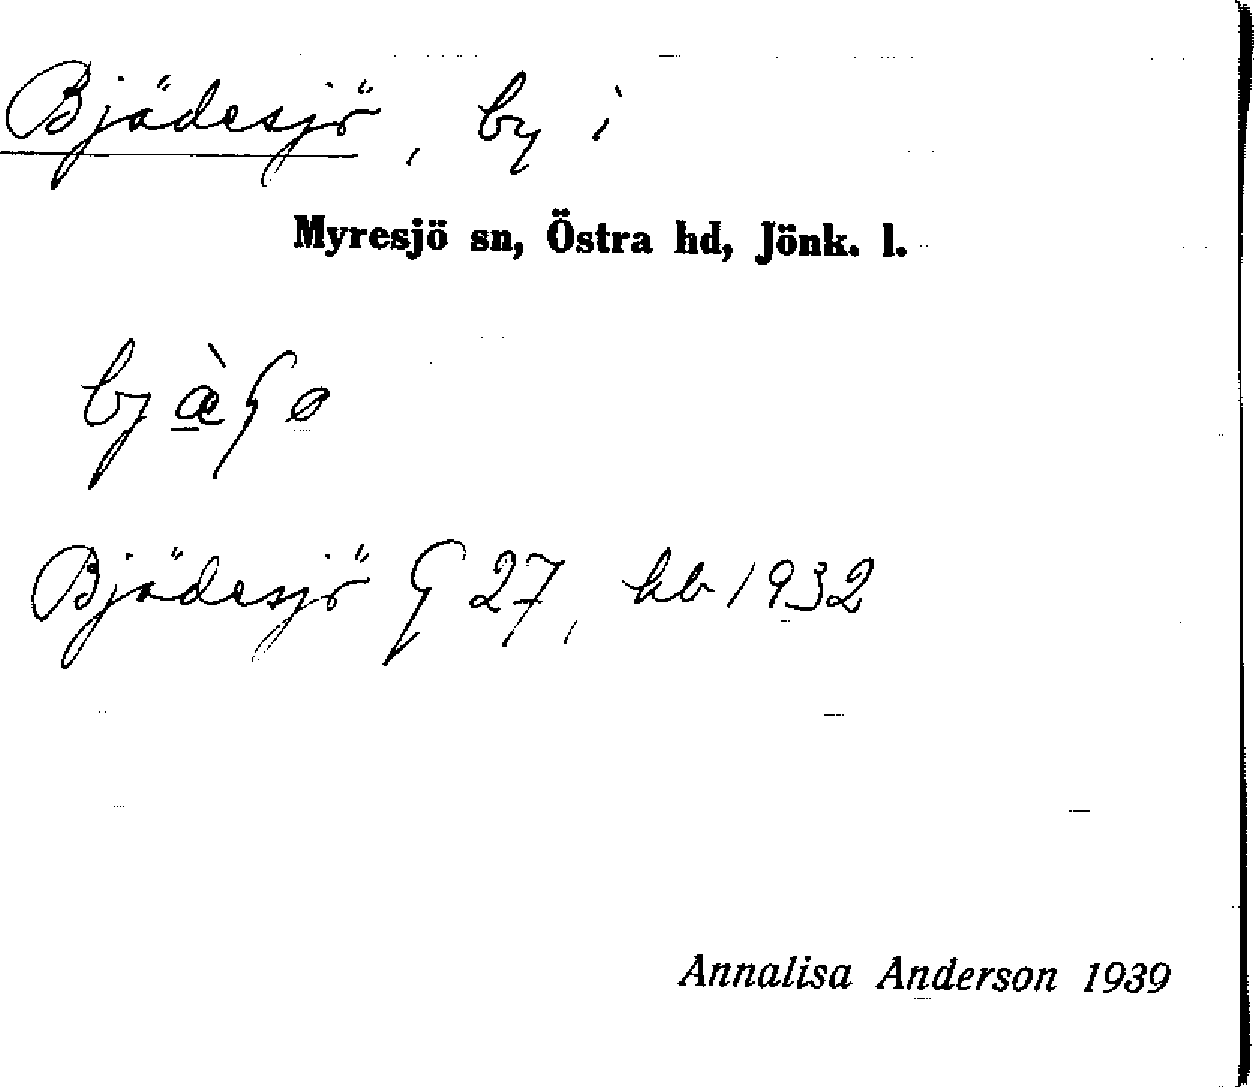 Bjädesjö, by i
Myresjö sn, Östra hd, Jönk. l.
Bjädesjö G 27, hb 1932
Annalisa Anderson 1939